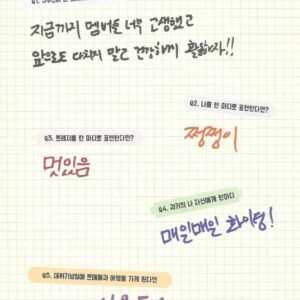 지금까지 멤버들 너무 고생했고
앞으로도 다치지 말고 건강하게 활동하자!!
Q2. 나를 한 마디로 표현한다면?
쩡쩡이
Q3. 트레저를 한 마디로 표현한다면?
멋있음
Q4. 과거의 나 자신에게 한마디
매일매일 화이팅!
Q5. 데뷔기념일에 트메들과 여행을 가게 된다면